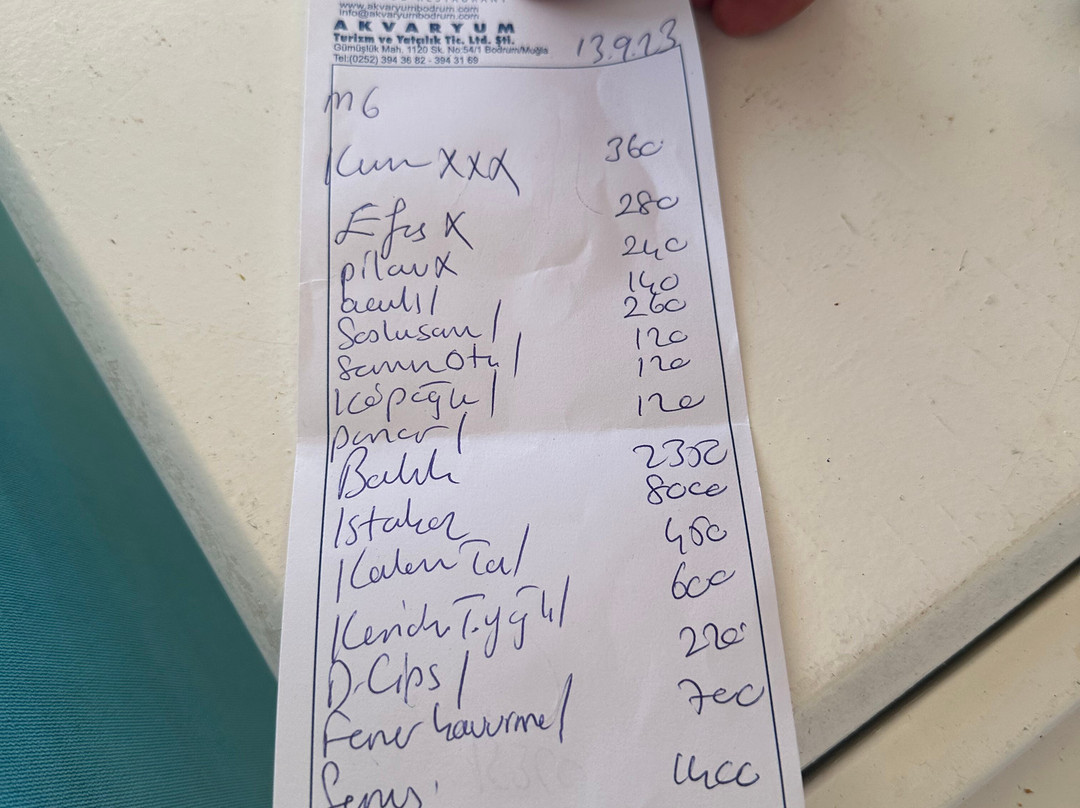 www.akvaryumbodrum.com
info@akvaryumbodrum.com
AKVARYUM
Turizm ve Yatçılık Tic. Ltd. Şti.
Gümüşlük Mah. 1120 Sk. No:54/1 Bodrum/Muğla
Tel:(0252) 394 36 82 - 394 31 69
13.9.23
m6
XXX 360
Efes X 280
pilav X 240
acılı / 140
Soslusam / 260
Samnotu / 120
Köpoğlu / 120
panar / 120
Balık 2350
Istakoz 8000
Kalem Ta / 450
Karides T.yğlı / 600
D.Cips / 220
Fener kavurma / 700
Servis 1400